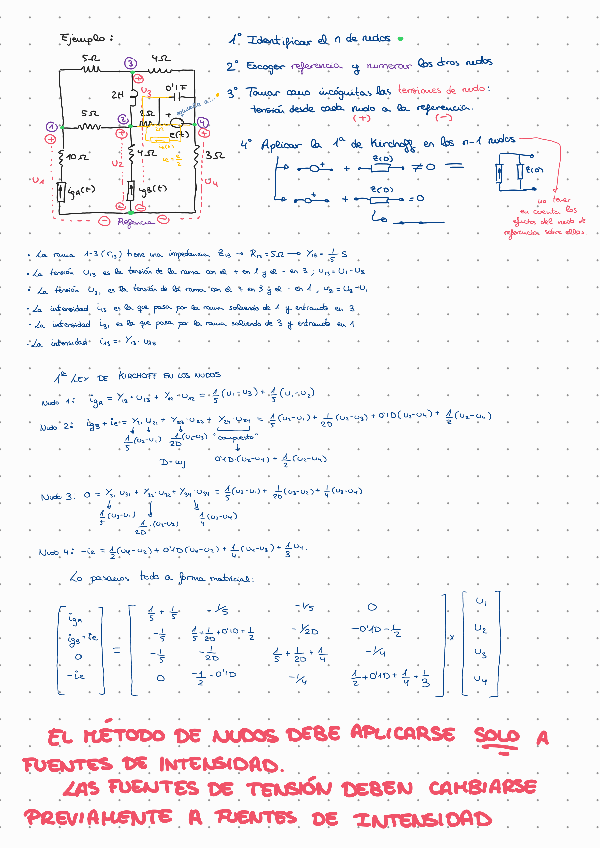 Ejemplo:
5Ω
3
4Ω
2H
U3
0'1F
5Ω
2
2Ω
1
4
e(t)
10Ω
4Ω
3Ω
U1
U2
U4
igA(t)
igB(t)
Referencia
1º Identificar el n de nudos
2º Escoger referencia y numerar los otros nudos
3º Tomar como incógnitas las tensiones de nudo:
tensión desde cada nudo a la referencia.
(+) (-)
4º Aplicar la 1ª de Kirchoff en los n-1 nudos
+ Z(D) ≠0
+ Z(D) =0
Z(D)
no tener
en cuenta los
efectos del nudo de
referencia sobre ellos
· La rama 1-3 (r13) tiene una impedancia Z13 → R13=5Ω → Y13 = 1/5 S
· La tensión U13 es la tensión de la rama con el + en 1 y el - en 3 ; U13=U1-U3
· La tensión U31 es la tensión de la rama con el + en 3 y el - en 1, U31=U3-U1
· La intensidad i13 es la que pasa por la rama saliendo de 1 y entrando en 3
· La intensidad i31 es la que pasa por la rama saliendo de 3 y entrando en 1
· La intensidad i13 = Y13 · U13
1ª LEY DE KIRCHOFF EN LOS NUDOS
Nudo 1: igA = Y13 · U13 + Y12 · U12 = 1/5 (U1-U3) + 1/5 (U1-U2)
Nudo 2: igB + ie = Y21 U21 + Y23 U23 + Y24 · U24 = 1/5 (U2-U1) + 1/2D (U2-U3) + 0'1D (U2-U4) + 1/2 (U2-U4)
1/5 (U2-U1) 1/2D (U2-U3) "compuesto"
D=wj 0'1D·(U2-U4) + 1/2 (U2-U4)
Nudo 3. 0 = Y31 U31 + Y32 · U32 + Y34 · U34 = 1/5 (U3-U1) + 1/2D (U3-U2) + 1/4 (U3-U4)
1/5 (U3-U1) 1/2D · (U3-U2) 1/4 (U3-U4)
Nudo 4: -ie = 1/2 (U4-U2) + 0'1D (U4-U2) + 1/4 (U4-U3) + 1/3 U4.
Lo pasamos todo a forma matricial:
igA 1/5 + 1/5 -1/5 -1/5 0 U1
igB + ie -1/5 1/5 + 1/2D + 0'1D + 1/2 -1/2D -0'1D - 1/2 U2
0 = -1/5 -1/2D 1/5 + 1/2D + 1/4 -1/4 x U3
-ie 0 -1/2 - 0'1D -1/4 1/2 + 0'1D + 1/4 + 1/3 U4
EL MÉTODO DE NUDOS DEBE APLICARSE SOLO A
FUENTES DE INTENSIDAD.
LAS FUENTES DE TENSIÓN DEBEN CAMBIARSE
PREVIAMENTE A FUENTES DE INTENSIDAD